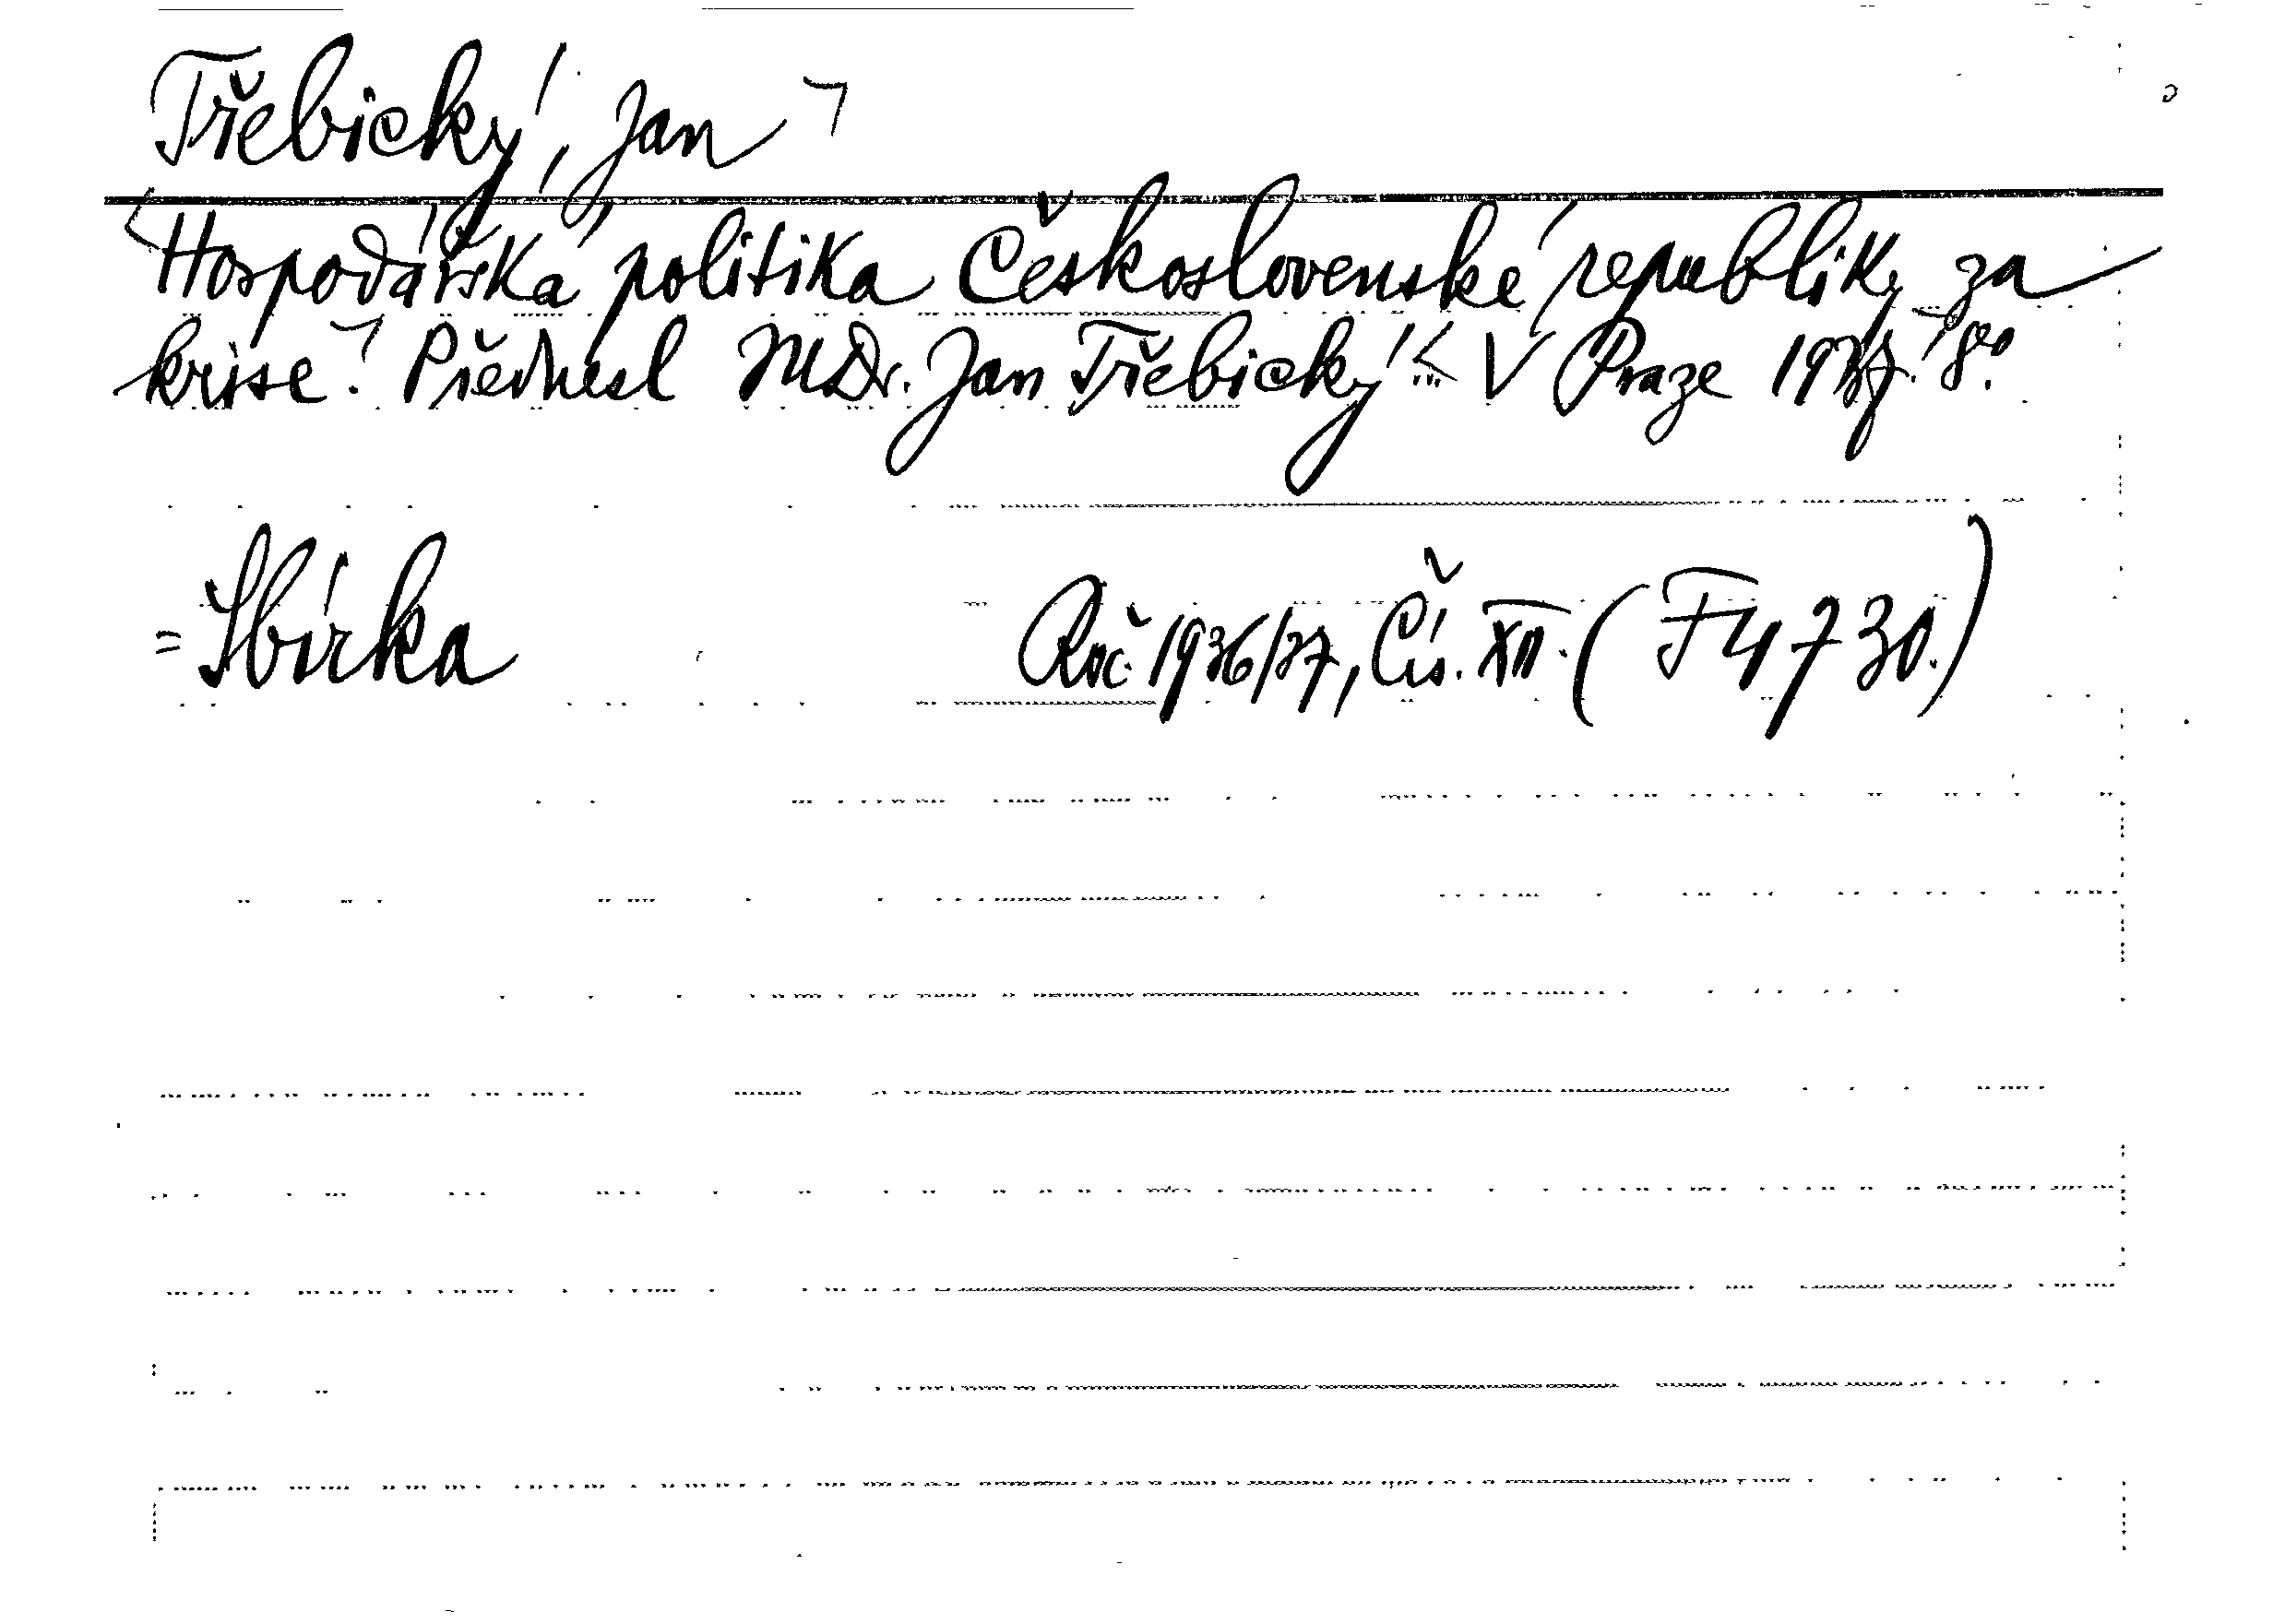 Třebický, Jan
Hospodářská politika Československé republiky za
krise. Přednesl MDr. Jan Třebický ... V Praze 1937. 8°.
= Sbírka Roč. 1936/37, Čís. XII. (F 4730.)